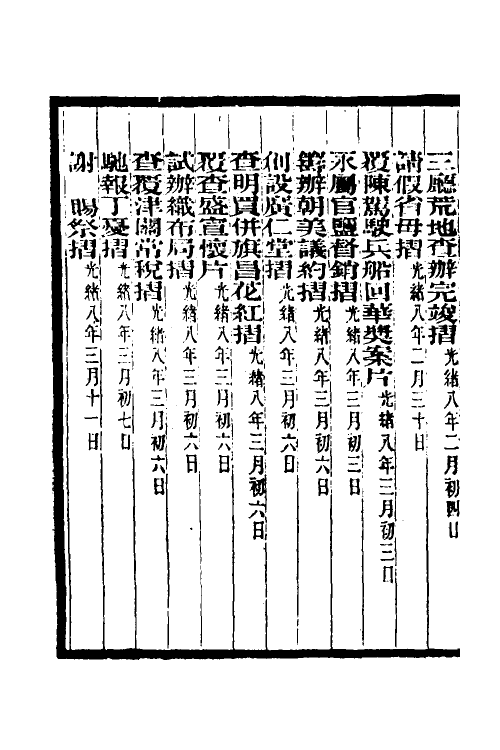 三廳荒地查辦完竣摺光緒八年二月初四日
請假省毋摺光緒八年二月三十日
覆陳駕駛兵船回華獎案片光緒八年三月初三日
永屬官鹽督銷摺光緒八年三月初三日
籌辦朝美議約摺光緒八年三月初六日
創設廣仁堂摺光緒八年三月初六日
查明買併旗昌花紅摺光緒八年三月初六日
覆查盛宣懷片光緒八年三月初六日
試辦織布局摺光緒八年三月初六日
查覆津關常稅摺光緒八年三月初六日
馳報丁憂摺光緒八年三月初七日
謝 賜祭摺光緒八年三月十一日